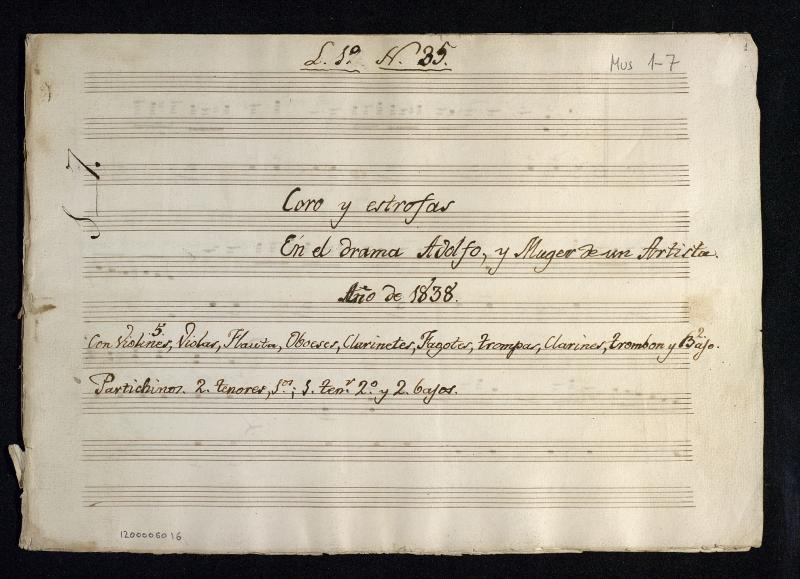 L. 1º N. 35.
Mus 1-7
1
Coro y estrofas
En el drama Adolfo, y Muger de un Artista.
Año de 1838.
5. 2
Con Violines, Violas, Flauta, Oboeses, Clarinetes, Fagotes, trompas, Clarines, trombon y Bajo.
Partichinos. 2. tenores, 1.os; 1. tenr. 2.º y 2. bajos.
1200006016